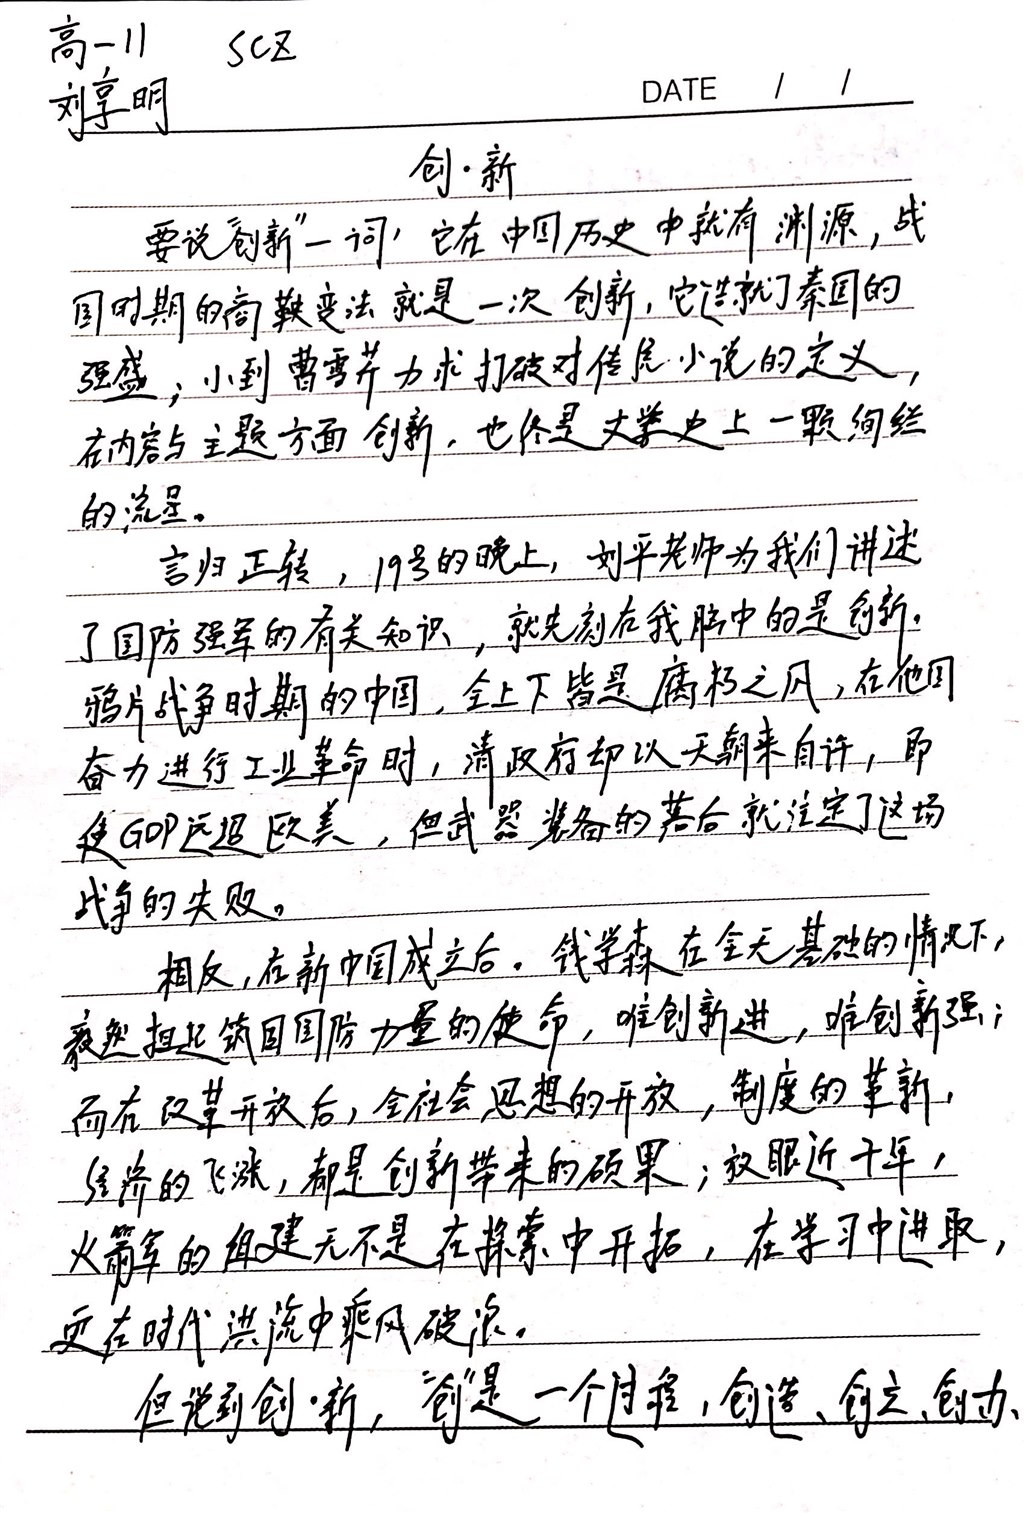 高一11 SCZ
刘享明
DATE / /
创·新
要说“创新”一词，它在中国历史中就有渊源，战
国时期的商鞅变法就是一次创新，它造就了秦国的
强盛；小到曹雪芹力求打破对传统小说的定义，
在内容与主题方面创新，也终是文学史上一颗绚烂
的流星。
言归正转，19号的晚上，刘平老师为我们讲述
了国防强军的有关知识，就先刻在我脑中的是创新。
鸦片战争时期的中国，全上下皆是腐朽之风，在他国
奋力进行工业革命时，清政府却以天朝来自许，即
使GDP远超欧美，但武器装备的落后就注定了这场
战争的失败。
相反，在新中国成立后。钱学森在全无基础的情况下，
毅然担起筑固国防力量的使命，唯创新进，唯创新强；
而在改革开放后，全社会思想的开放，制度的革新，
经济的飞涨，都是创新带来的硕果；放眼近十年，
火箭军的组建无不是在探索中开拓，在学习中进取，
更在时代洪流中乘风破浪。
但说到创·新，“创”是一个过程，创造、创立、创办、